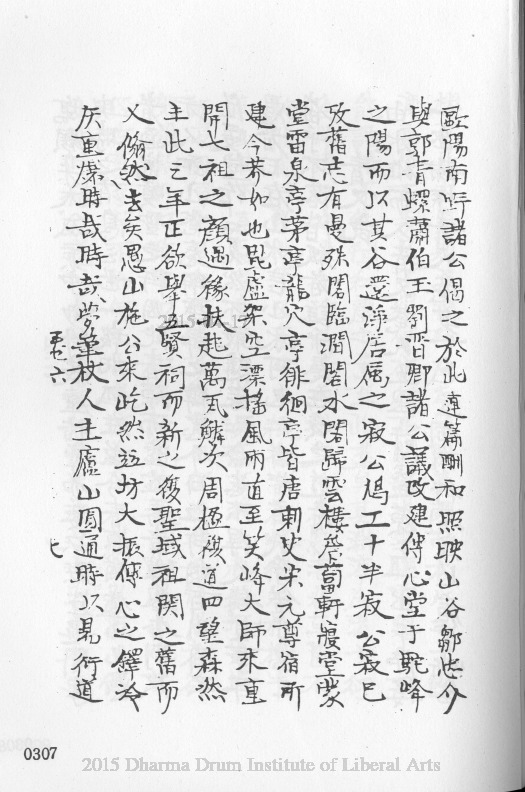 歐陽南野諸公倡之於此連篇酬和照映山谷鄒忠介
與郭青螺蕭伯玉劉晋卿諸公議改建傳心堂于駝峰
之陽而以其谷還淨居屬之寂公鳩工十半寂公寂已
攷舊志有曼殊閣臨澗閣水閣歸雲樓簷蔔軒寢堂蒙
堂雷泉亭茅亭龍穴亭徘徊亭皆唐刺史宋元尊宿所
建今莽如也毘盧架空漂搖風雨直至笑峰大師來重
開七祖之顏遇緣扶起萬瓦鱗次周楹複道四望森然
主此三年正欲舉五賢祠而新之復聖域祖関之舊而
乂翛然去矣愚山施公來屹然玆坊大振傳心之鐸冷
灰重爆時哉時哉夢筆杖人主廬山圓通時以易衍道
卷六
七
0307
2015 Dharma Drum Institute of Liberal Arts